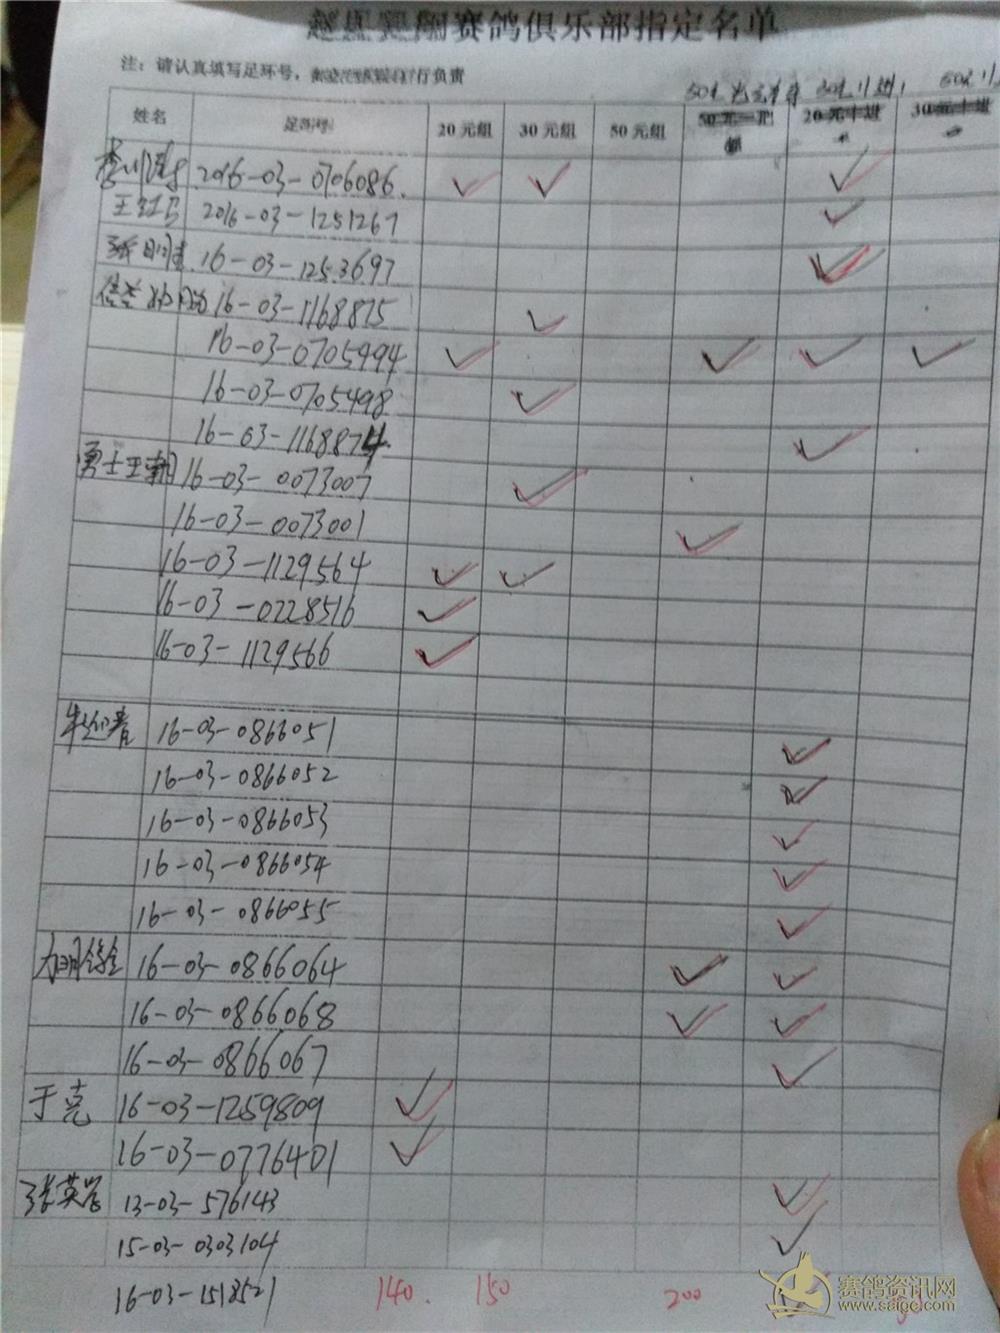 赛鸽俱乐部指定名单
注：请认真填写足环号，行负责
50元 30元 50元
姓名 足环号 20元组 30元组 50元组 50元一 20元十进 30元十进
2016-03-0706086
王红 2016-03-1251267
16-03-1253697
16-03-1168875
16-03-0705494
16-03-0705498
16-03-1168874
勇士王朝 16-03-0073007
16-03-0073001
16-03-1129564
16-03-0228516
16-03-1129566
16-03-0866051
16-03-0866052
16-03-0866053
16-03-0866054
16-03-0866055
16-03-0866064
16-03-0866068
16-03-0866067
于亮 16-03-1259809
16-03-0776401
张英 13-03-576143
15-03-0303104
16-03-1518521 140. 150 200
赛鸽资讯网
www.saige.com